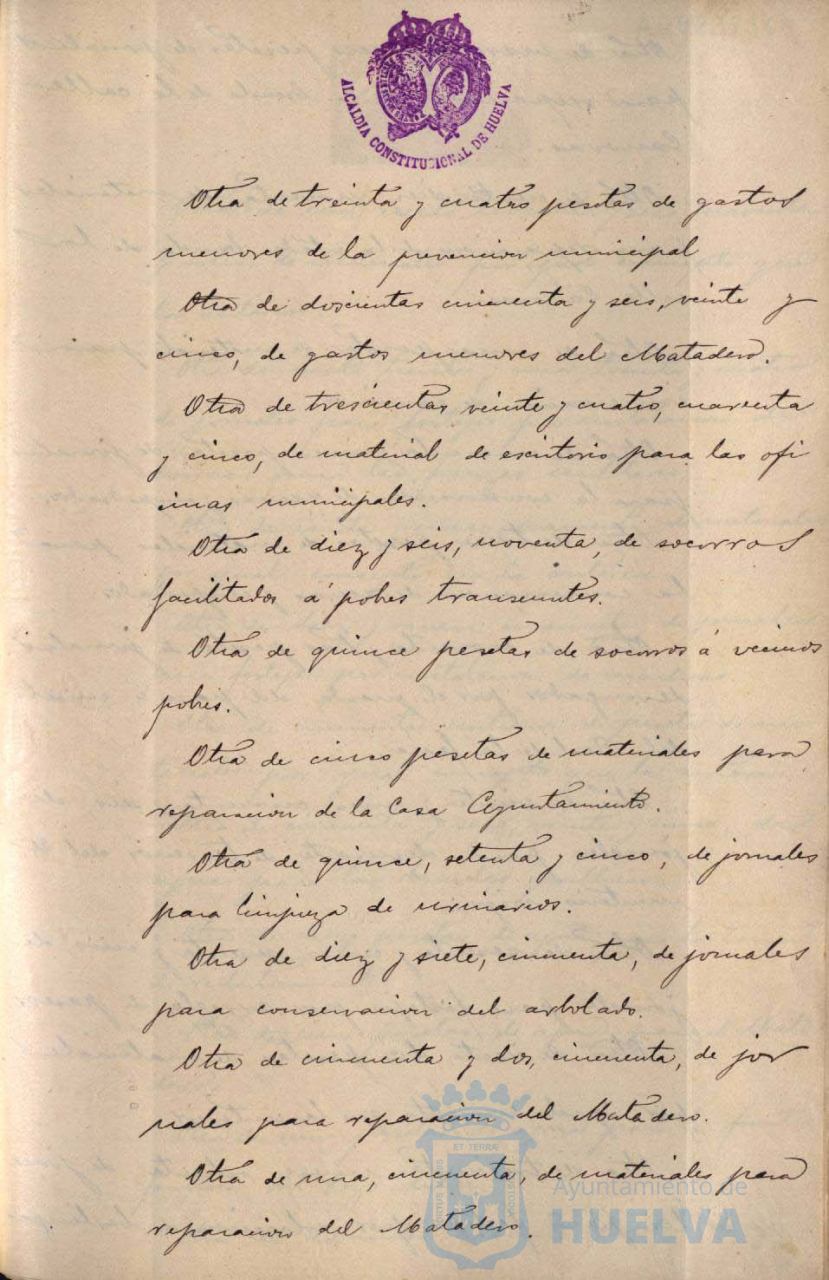 ALCALDIA CONSTITUCIONAL DE HUELVA
Otra de treinta y cuatro pesetas de gastos
menores de la prevencion municipal
Otra de doscientas cincuenta y seis, veinte y
cinco, de gastos menores del Matadero.
Otra de trescientas veinte y cuatro, cuarenta
y cinco, de material de escritorio para las ofi
cinas municipales.
Otra de diez y seis, noventa, de socorros
facilitados á pobres transeuntes.
Otra de quince pesetas de socorros á vecinos
pobres.
Otra de cinco pesetas de materiales para
reparacion de la Casa Ayuntamiento.
Otra de quince, setenta y cinco, de jornales
para limpieza de urinarios.
Otra de diez y siete, cincuenta, de jornales
para conservacion del arbolado.
Otra de cincuenta y dos, cincuenta, de jor
nales para reparacion del Matadero.
Otra de una, cincuenta, de materiales para
reparacion del Matadero.
ET TERRÆ
Ayuntamiento de
HUELVA